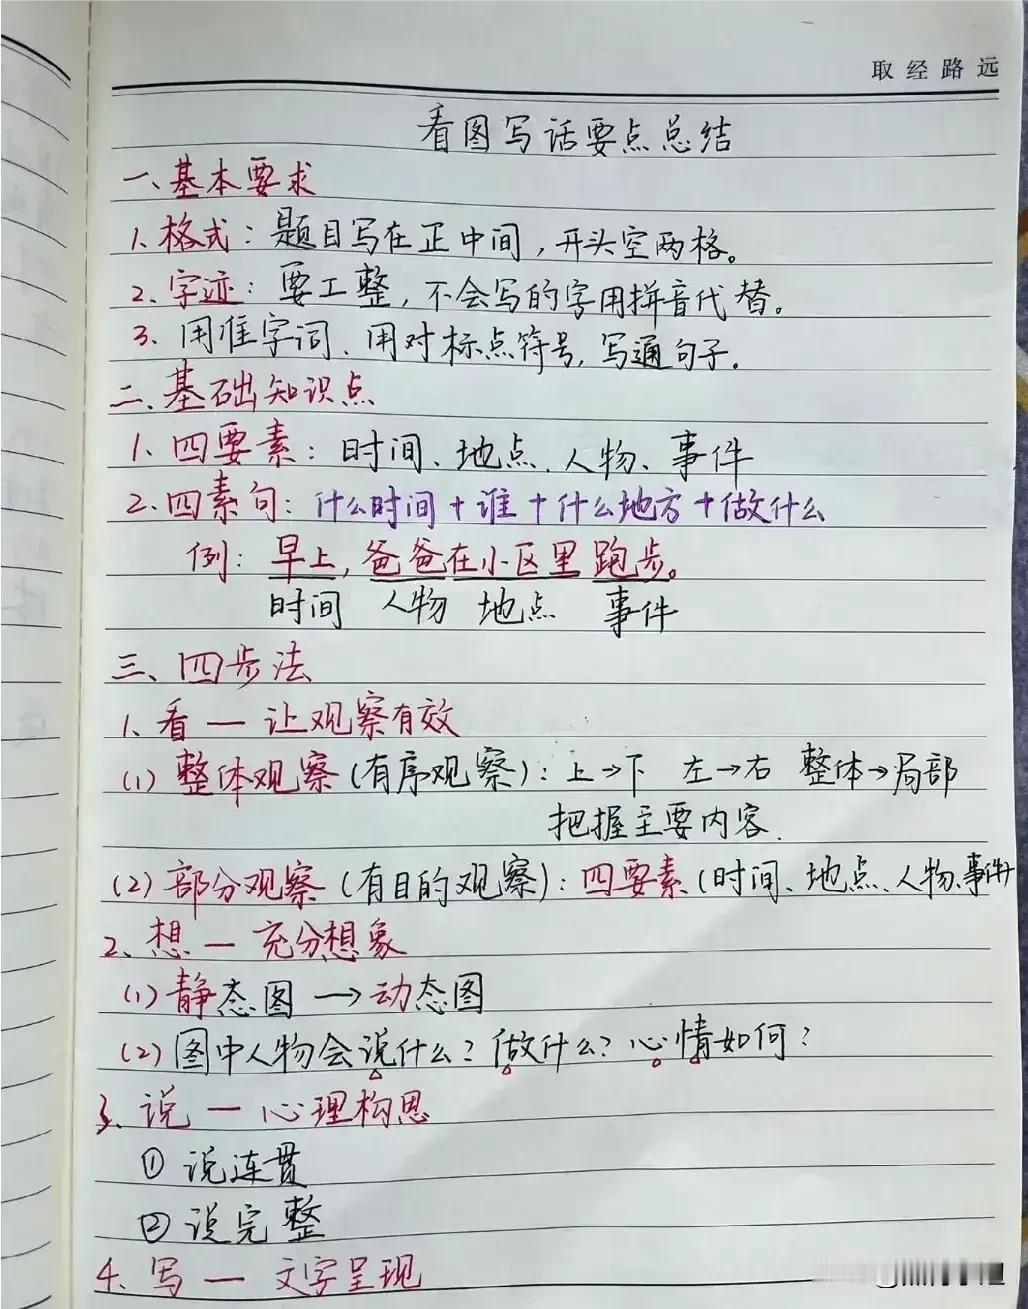 取经路远
看图写话要点总结
一、基本要求
1、格式：题目写在正中间，开头空两格。
2、字迹：要工整，不会写的字用拼音代替。
3、用准字词、用对标点符号，写通句子。
二、基础知识点
1、四要素：时间、地点、人物、事件
2、四素句：什么时间+谁+什么地方+做什么
例：早上，爸爸在小区里跑步。
时间 人物 地点 事件
三、四步法
1、看一让观察有效
(1)整体观察(有序观察)：上→下 左→右 整体→局部
把握主要内容.
(2)部分观察(有目的观察)：四要素(时间、地点、人物、事件)
2、想一充分想象
(1)静态图→动态图
(2)图中人物会说什么？做什么？心情如何？
3、说一心理构思
①说连贯
②说完整
4、写一文字呈现